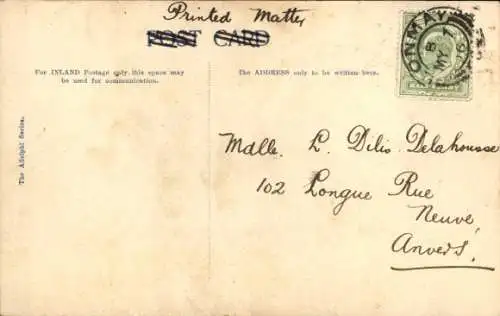 Printed Matter
POST CARD
For INLAND Postage only, this space may
be used for communication.
The ADDRESS only to be written here.
The Adelphi Series.
Malle. L. Dilis Delahousse
102 Longue Rue
Neuve
Anvers